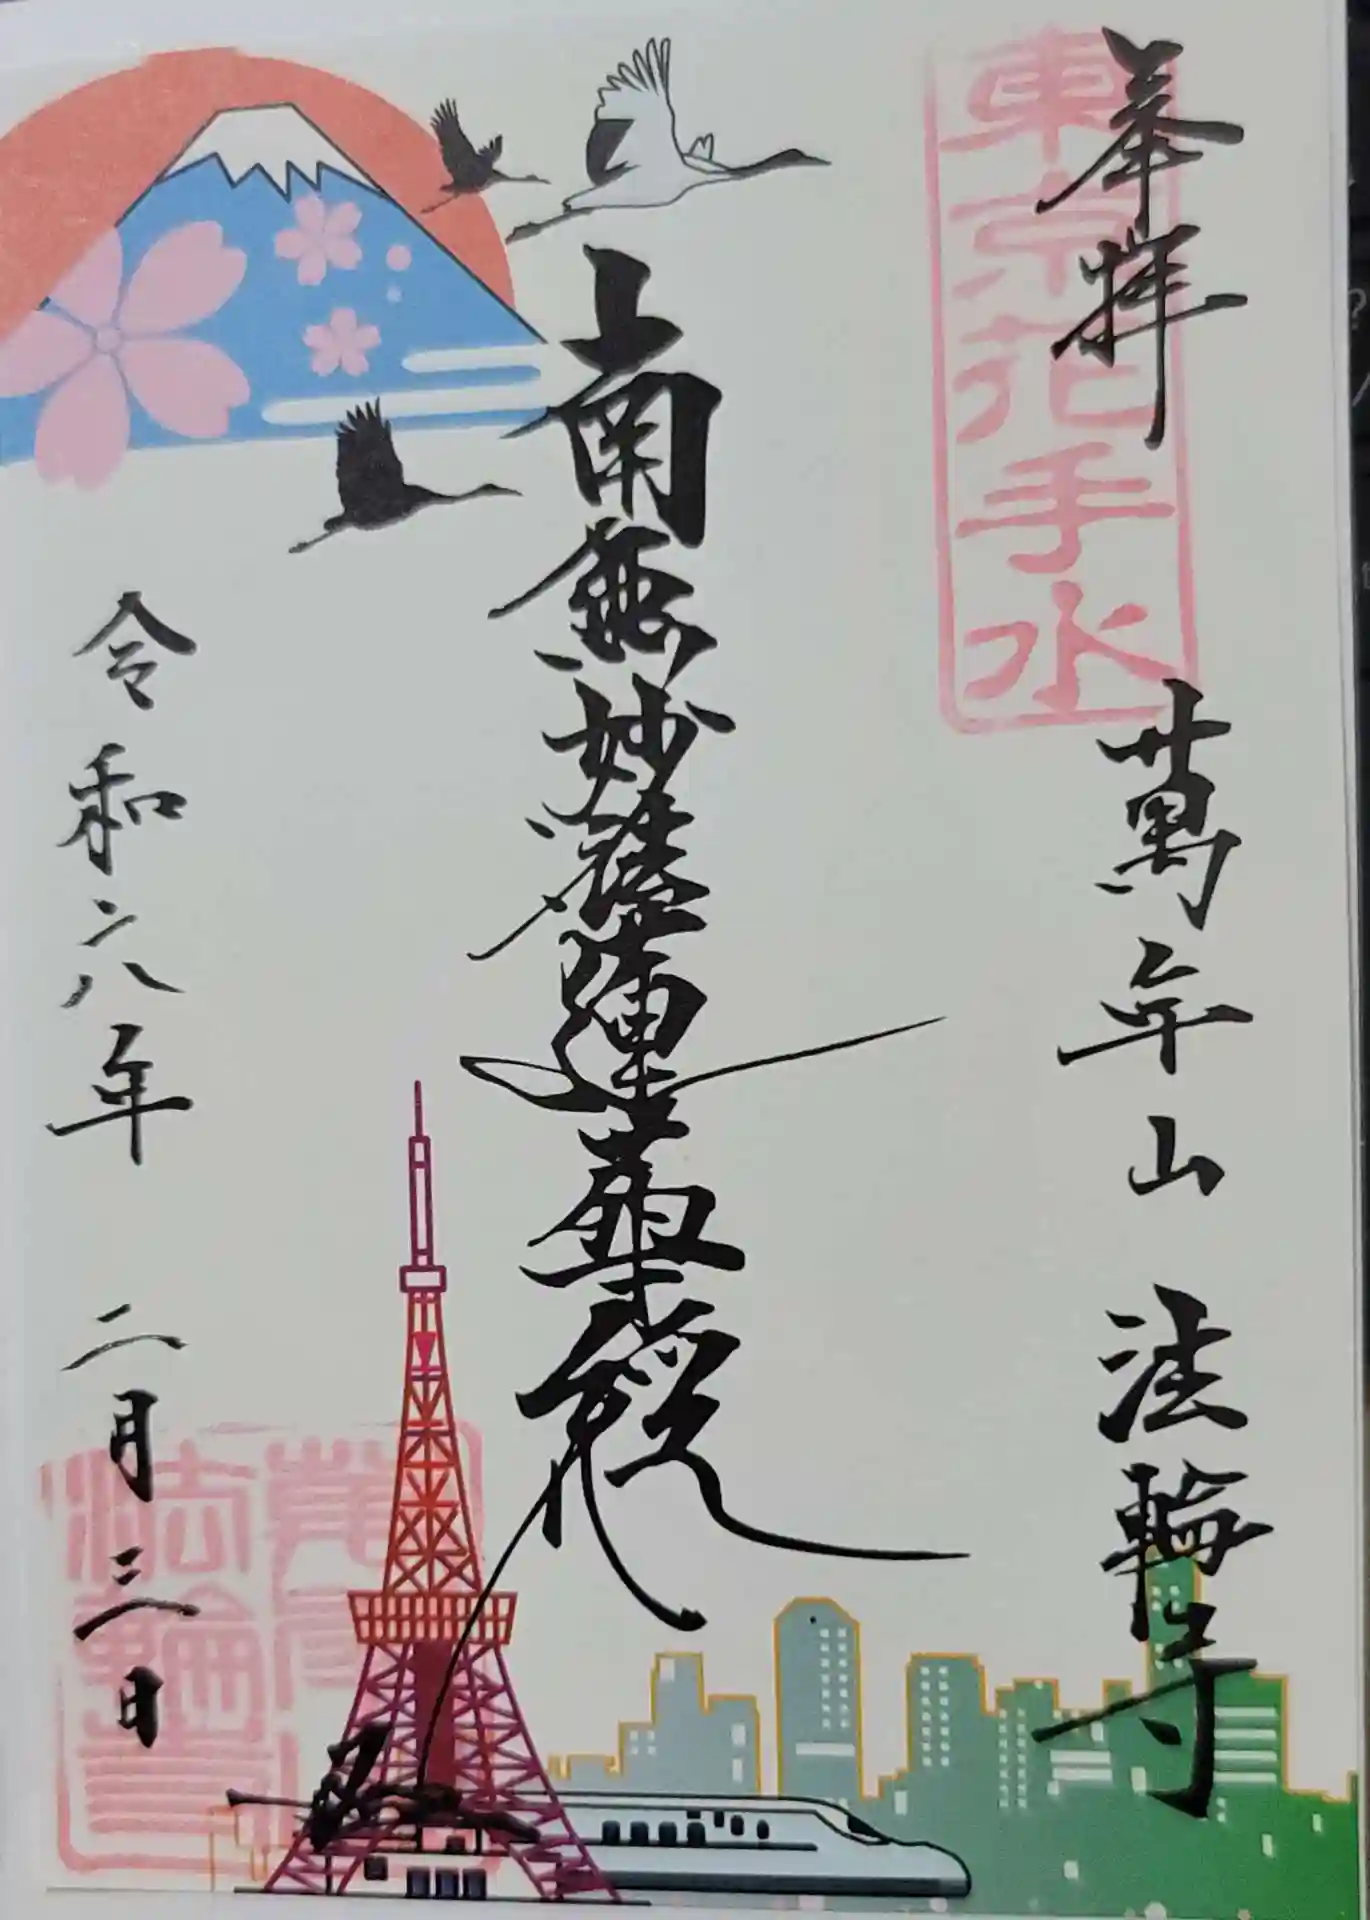 奉拝
東京花手水
萬年山 法輪寺
南無妙法蓮華経
令和六年 二月三日
法輪寺